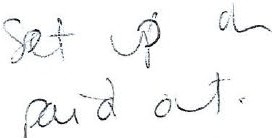 set up &
paid out.